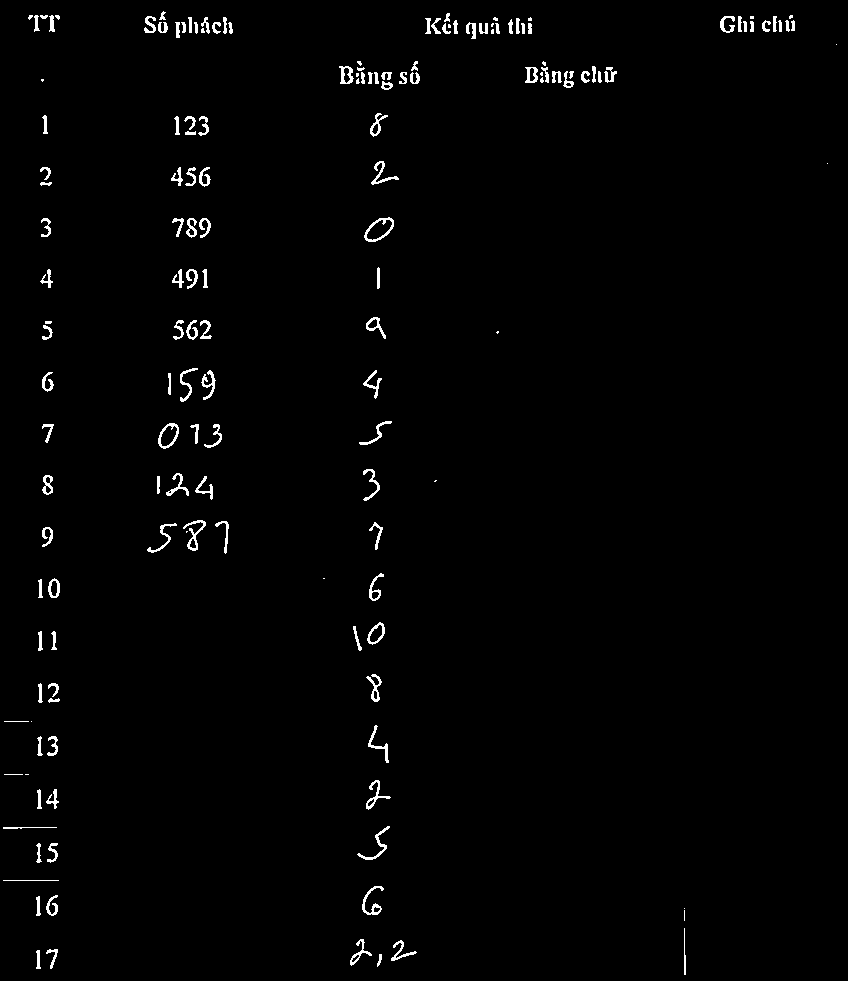 TT Số phách Kết quả thi Ghi chú
Bằng số Bằng chữ
1 123 8
2 456 2
3 789 0
4 491 1
5 562 9
6 159 4
7 013 5
8 124 3
9 587 7
10 6
11 10
12 8
13 4
14 2
15 5
16 6
17 2,2